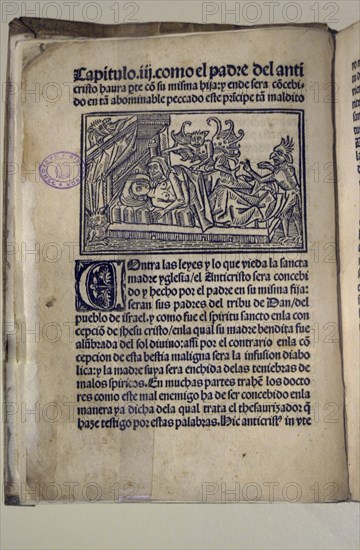 Capitulo.iij.como el padre del anti
cristo haura pte cō su misma hija: y ende sera cōcebi
do en tā abominable peccado este prīcipe tā maldito
COntra las leyes y lo que vieda la sancta
madre yglesia/el Anticristo sera concebi
do y hecho por el padre en su misma fija:
seran sus padres del tribu de Dan/del
pueblo de israel.y como fue el spiritu sancto enla con
cepciōn de jhesu cristo/enla qual su madre bendita fue
alūbrada del sol diuino:assi por el contrario enla cō
cepcion de esta bestia maligna sera la infusion diabo
lica:y la madre suya sera enchida delas teniebras de
malos spiritos.En muchas partes trahē los docto
res como este mal enemigo ha de ser concebido enla
manera ya dicha dela qual trata el thesaurizador q̄
haze testigo por estas palabras.Hic anticrist⁹ in vte
PHOTO12